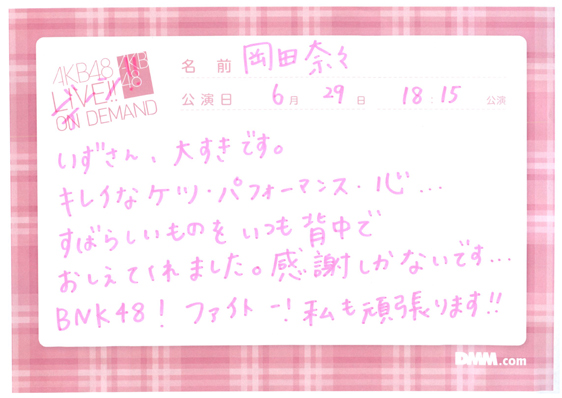 AKB48
LIVE!!
ON DEMAND
AKB
48
名 前 岡田奈々
公演日 6月 29日 18:15 公演
いずさん、大すきです。
キレイなケツ・パフォーマンス・心…
すばらしいものをいつも背中で
おしえてくれました。感謝しかないです…
BNK48! ファイトー! 私も頑張ります!!
DMM.com